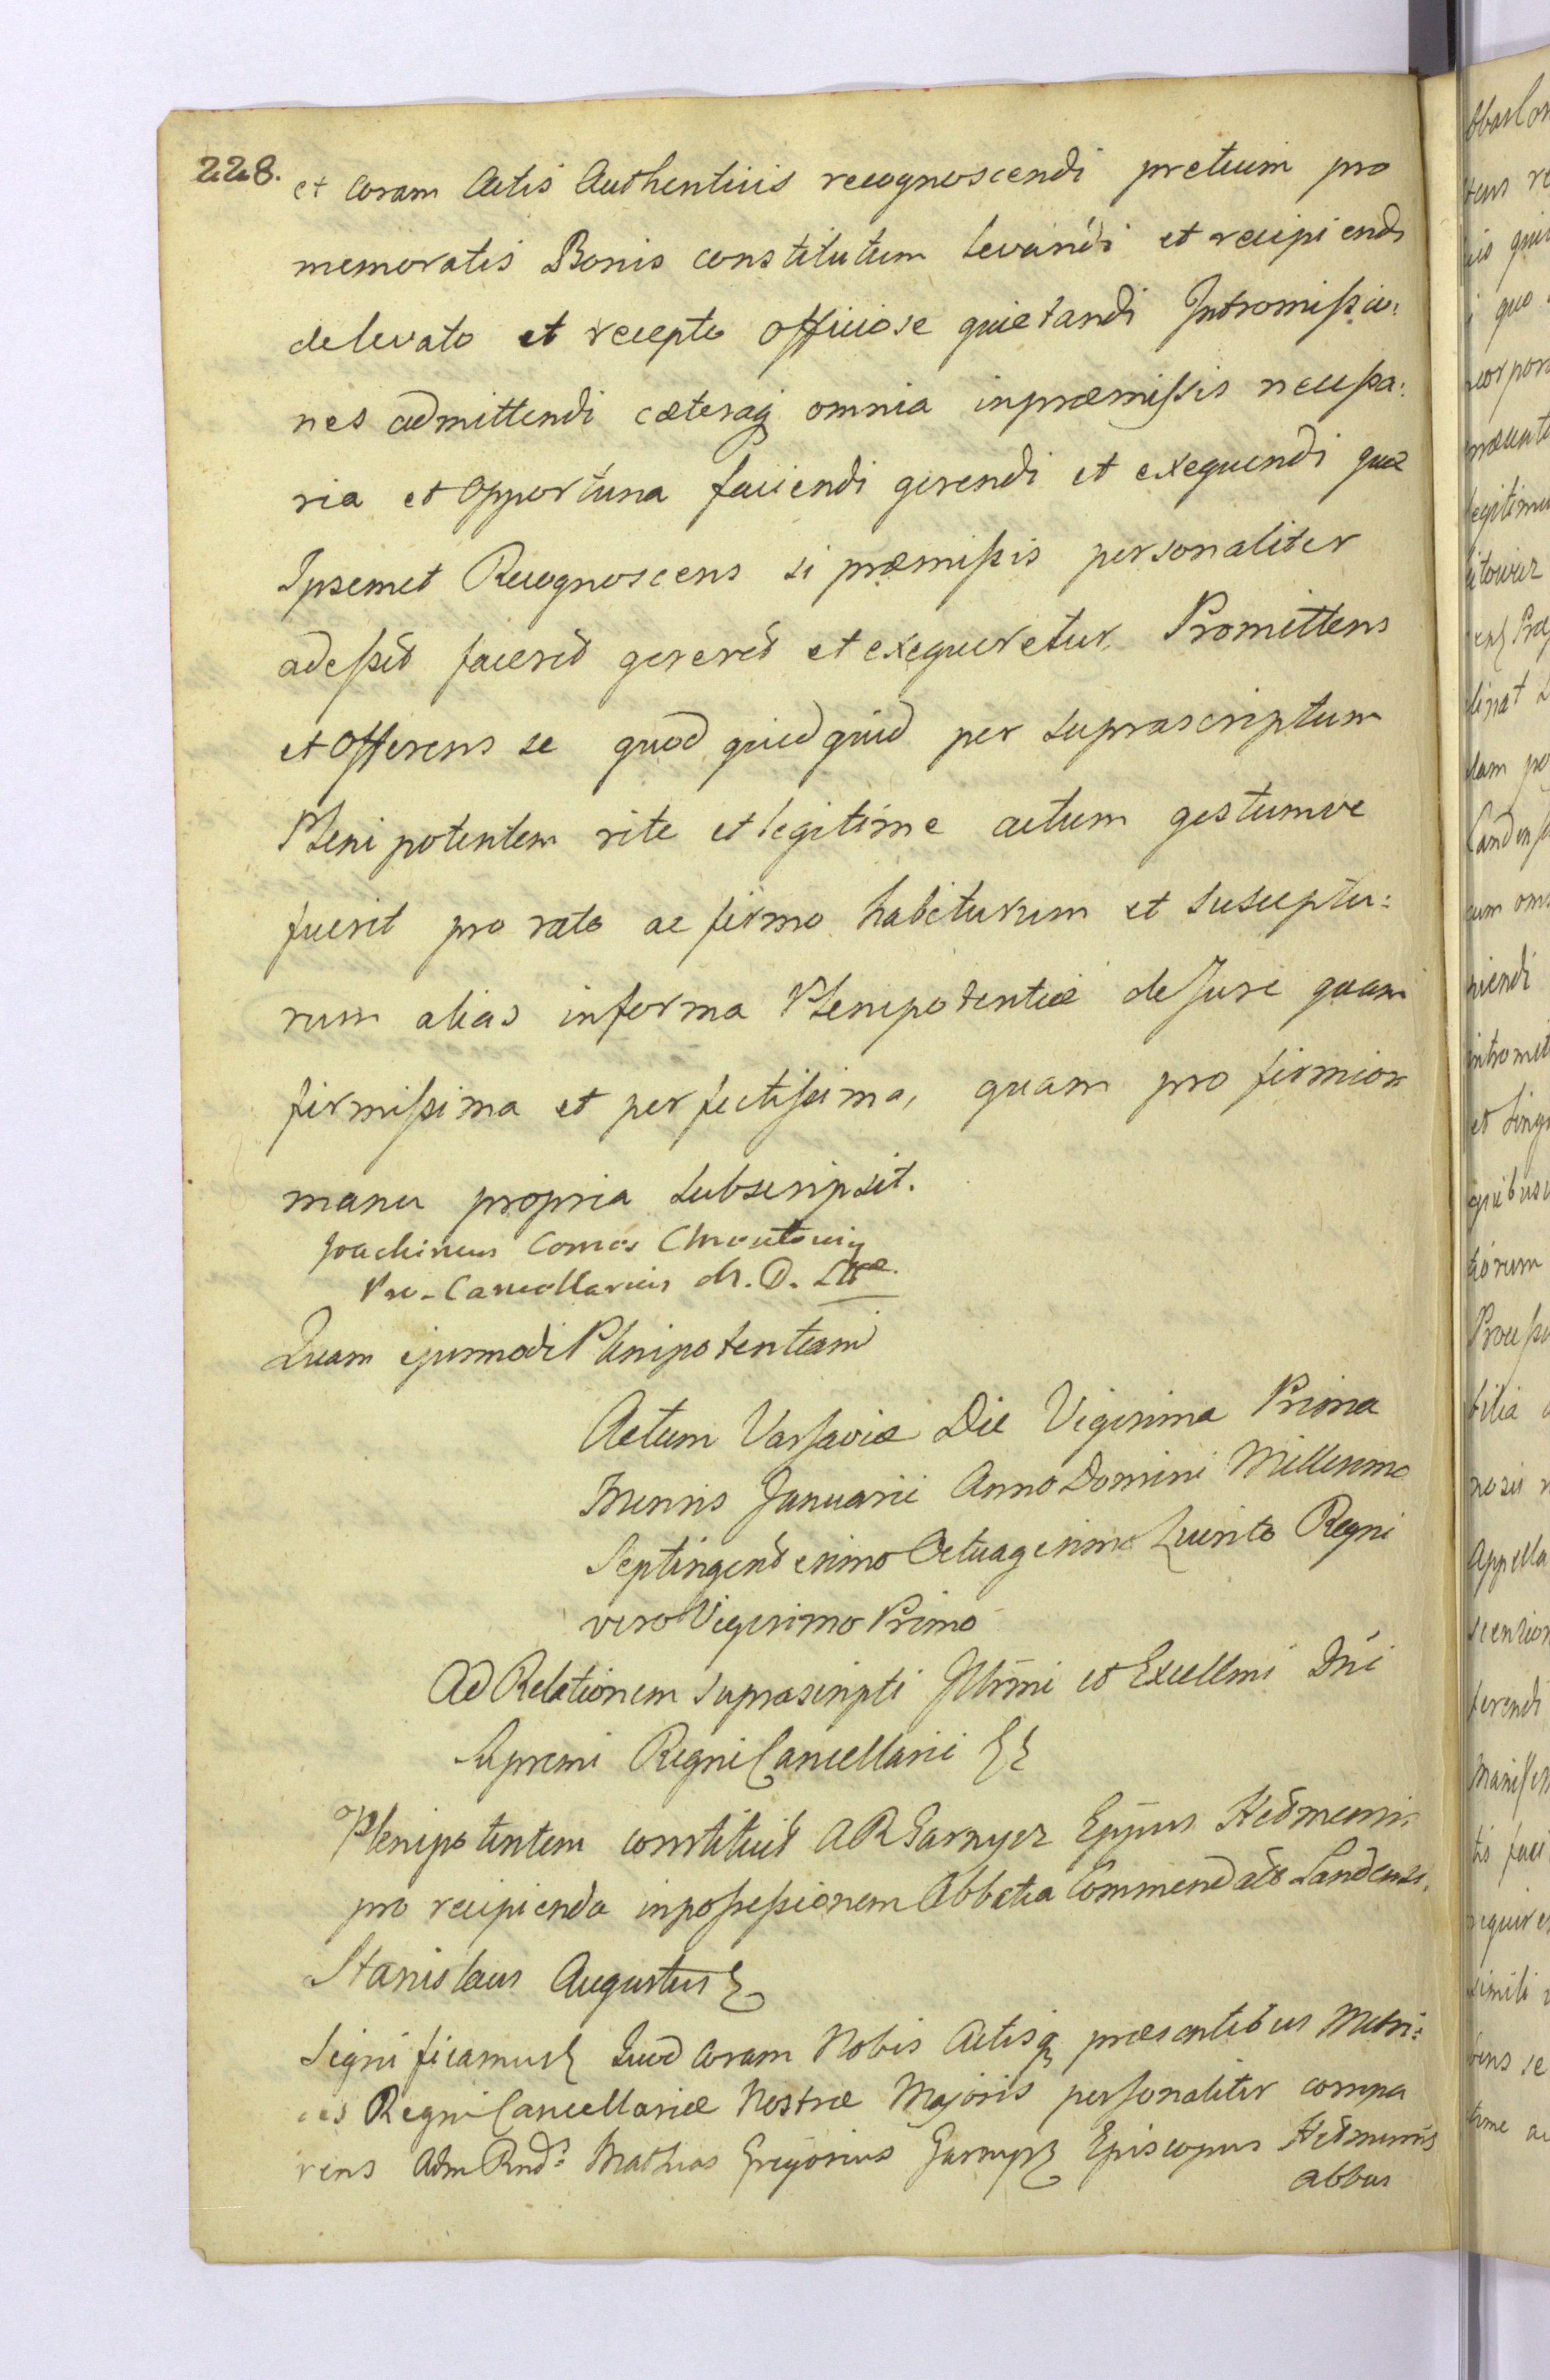 228.
et coram Actis Authenticis recognoscendi pretium pro
memoratis Bonis constitutum levandi et recipiendi
de levato et recepto officiose quietandi Intromissio:
nes admittendi cæteraq omnia in præmissis necessa:
ria et opportuna faciendi gerendi et exequendi quæ
Ipsemet Recognoscens si præmissis personaliter
adesset faceret gereret et exequeretur. Promittens
et offerens se quod quidquid per suprascriptum
Plenipotentem rite et legitime actum gestumve
fuerit pro rato ac firmo habiturum et susceptu:
rum alias in forma Plenipotentiæ de Jure quam
firmissima et perfectissima, quam pro firmiori
manu propria subscripsit.
Joachimus Comes Chreptowicz
Pro-Cancellarius M. D. Litt.
Quam ejusmodi Plenipotentiam
Actum Varsaviæ Die Vigesima Prima
Mensis Januarii Anno Domini Millesimo
Septingentesimo Octuagesimo Quinto Regni
vero Vigesimo Primo
Ad Relationem suprascripti Illmi et Excellmi Dni
Supremi Regni Cancellarii
Plenipotentem constituit AR Garnysz Eppus Chelmensis
pro recipienda in possessionem Abbatia Commendato Landensi.
Stanislaus Augustus
Significamus Quod coram Nobis Actisq præsentibus Metri:
ces Regni Cancellariæ Nostræ Majoris personaliter compa
rens Adm Rnd: Mathias Gregorius Garnysz Episcopus Chelmensis
abbas